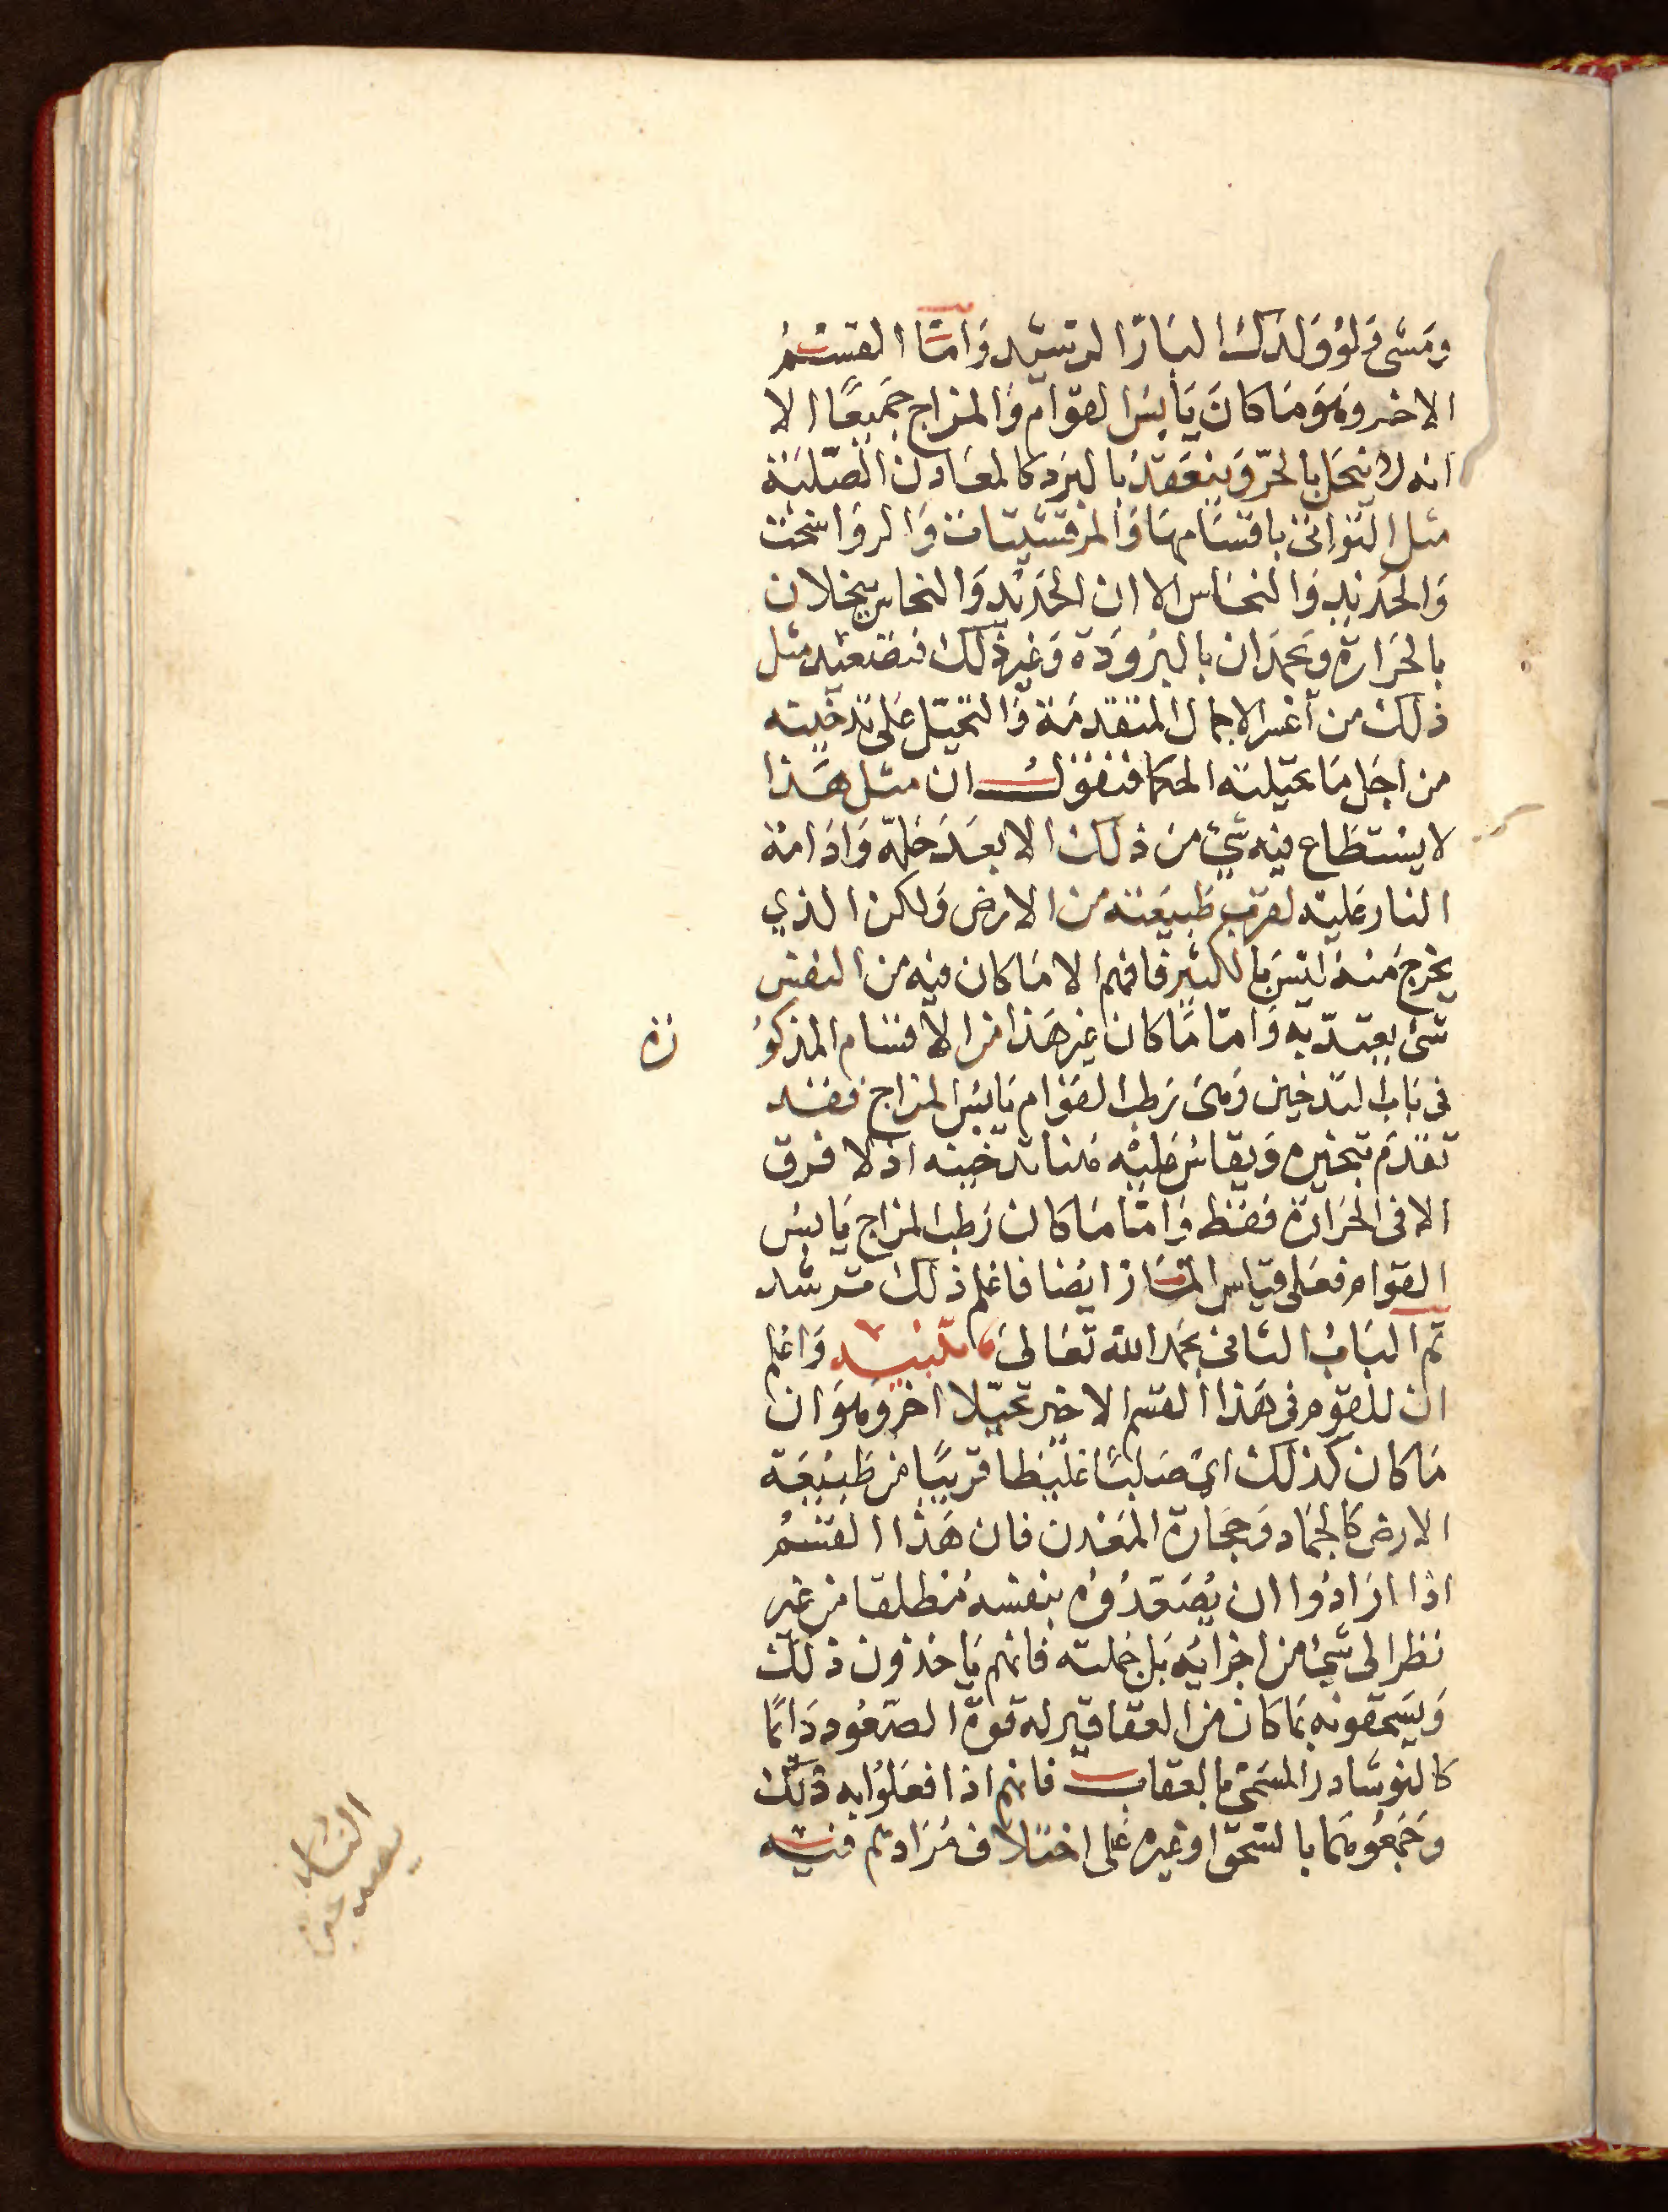 ومتى قولو ولدك البارّ الرشيد وَامّا القسْمُ
الاخر وهَو مَا كانَ يَابسَ القوَام وَالمزاج جَميعًا الا
انه لا ينحَل بالحرّ وَينعَقدُ بالبرَد كالمعَادن الصّلبَة
مثل التوَاتى باقسَامهَا وَالمرقشيتَات وَالروَاسخت
وَالحدَيدِ وَالنحَاس الا ان الحَديْد وَالنحاس ينحلان
بالحرَارة وَيجمدَان بالبرُودَة وَغير ذَلك فتصَعيد مثل
ذلك من أعسر الاعمال المتقدمَة وَالتحيّل عَلى تدخينه
من اجَل مَا تحيّلتهُ الحكما فنقول ان مثل هَذا
لا يسْتطَاع فيه شيء منَ ذلك الا بعَدَ حَلهّ وَادَامَة
النار عَليَه لقربِ طَبيعَته مَن الارض وَلكن الذي
يخرج مَنهُ ليْسَ بالكثير فافهم الا مَا كان فيه مَن النفس
شئ يعتدّ به وَامّا مَا كان غير هَذا من الاقسَام المذكوُ رة
فى بَاب التدخين وَهىَ رَطب القوَام يَابسُ المزاج فقد
تقدم تبخيره وَيقاسُ عَليْه هُنا تدخينه اذ لا فرق
الا فى الحرَارة فقط وَامّا مَا كان رَطب المزاج يَابسَ
القوام فعَلى قياس المَارّ ايضا فاعلم ذلك ترشد
تم البَابُ الثانى بحَمدِ اللّه تعَالى تنبيه وَاعْلم
ان للقوم فى هَذا القسم الاخير تحيّلا اخر وَهوَ ان
مَا كان كذلك ايْ صَلبًا غليظا قريبًا من طَبيْعَة
الارض كالجمَاد وَحجَارة المعَدن فان هَذا القسمُ
اذا ارَادُوا ان يُصَعّدوُه بنفسه مُطلقا من غير
نظر الى شئ من اجزائه بَل جملته فانهم يَاخذون ذلك
وَيسَحقونه بمَا كان من العقاقير له قوة الصّعُود دَائمًا
كالنوشادر المسَمىّ بالعقاب فانهم اذا فعَلوُا به ذلك
وَجَمَعُوهمَا بالسّحق اوغيره عَلى اختلاف مُرَادهم فيه